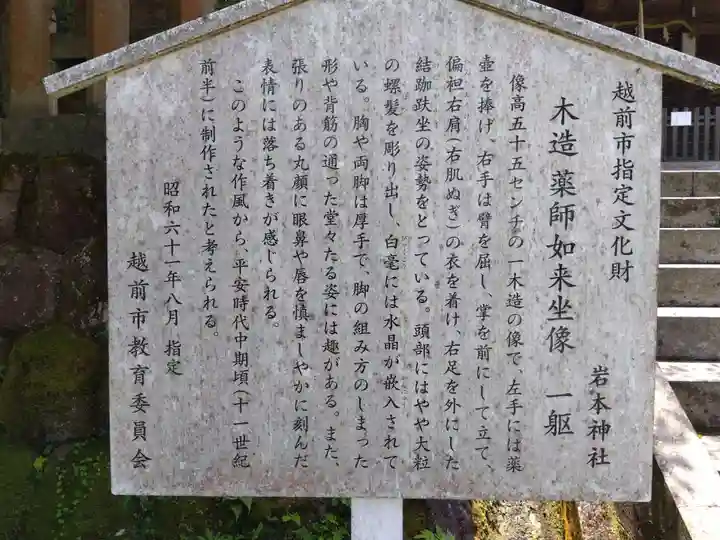 越前市指定文化財
木造 薬師如来坐像 一躯
岩本神社
像高五十五センチの一木造の像で、左手には薬
壺を捧げ、右手は臂を屈し、掌を前にして立て、
偏袒右肩(右肌ぬぎ)の衣を着け、右足を外にした
結跏趺坐の姿勢をとっている。頭部にはやや大粒
の螺髪を彫り出し、白毫には水晶が嵌入されて
いる。胸や両脚は厚手で、脚の組み方のしまった
形や背筋の通った堂々たる姿には趣がある。また、
張りのある丸顔に眼鼻や唇を慎ましやかに刻んだ
表情には落ち着きが感じられる。
このような作風から、平安時代中期頃(十一世紀
前半)に制作されたと考えられる。
昭和六十一年八月 指定
越前市教育委員会